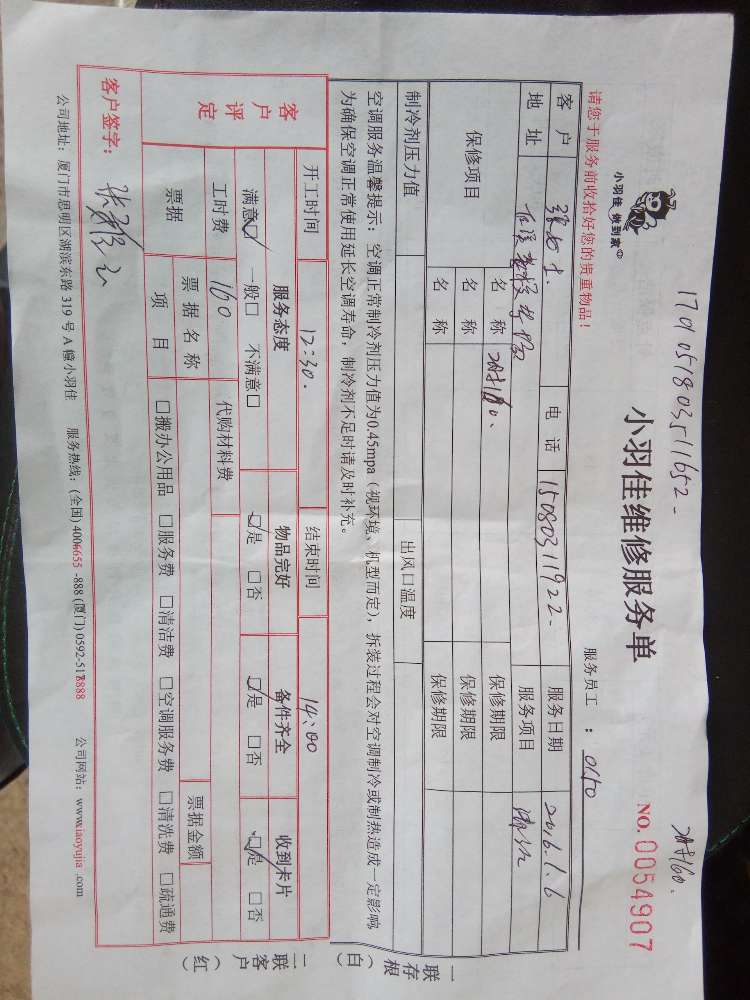 1701051803511652-
小羽佳 做到家
小羽佳维修服务单
NO. 0054907
请您于服务前收拾好您的贵重物品!
服务员工 : 0150
客户 张女士 电话 15080311922- 服务日期 2016.1.6
地址 服务项目
保修项目 名称 保修期限
名称 保修期限
名称 保修期限
制冷剂压力值 出风口温度
空调服务温馨提示:空调正常制冷剂压力值为0.45mpa(视环境、机型而定),拆装过程会对空调制冷或制热造成一定影响,
为确保空调正常使用延长空调寿命,制冷剂不足时请及时补充。
开工时间 12:30. 结束时间 14:00
客户评定 服务态度 物品完好 备件齐全 收到卡片
满意☑ 一般□ 不满意□ ☑是 □否 ☑是 □否 ☑是 □否
工时费 160 代购材料费
票据 票据名称 票据金额
项目 □搬办公用品 □服务费 □清洁费 □空调服务费 □清洗费 □疏通费
客户签字:
公司地址:厦门市思明区湖滨东路 319 号 A 幢小羽佳 服务热线:(全国) 4006655 -888 (厦门) 0592-5178888 公司网站:www.iaoyujia .com
一联存根(白)
二联客户(红)